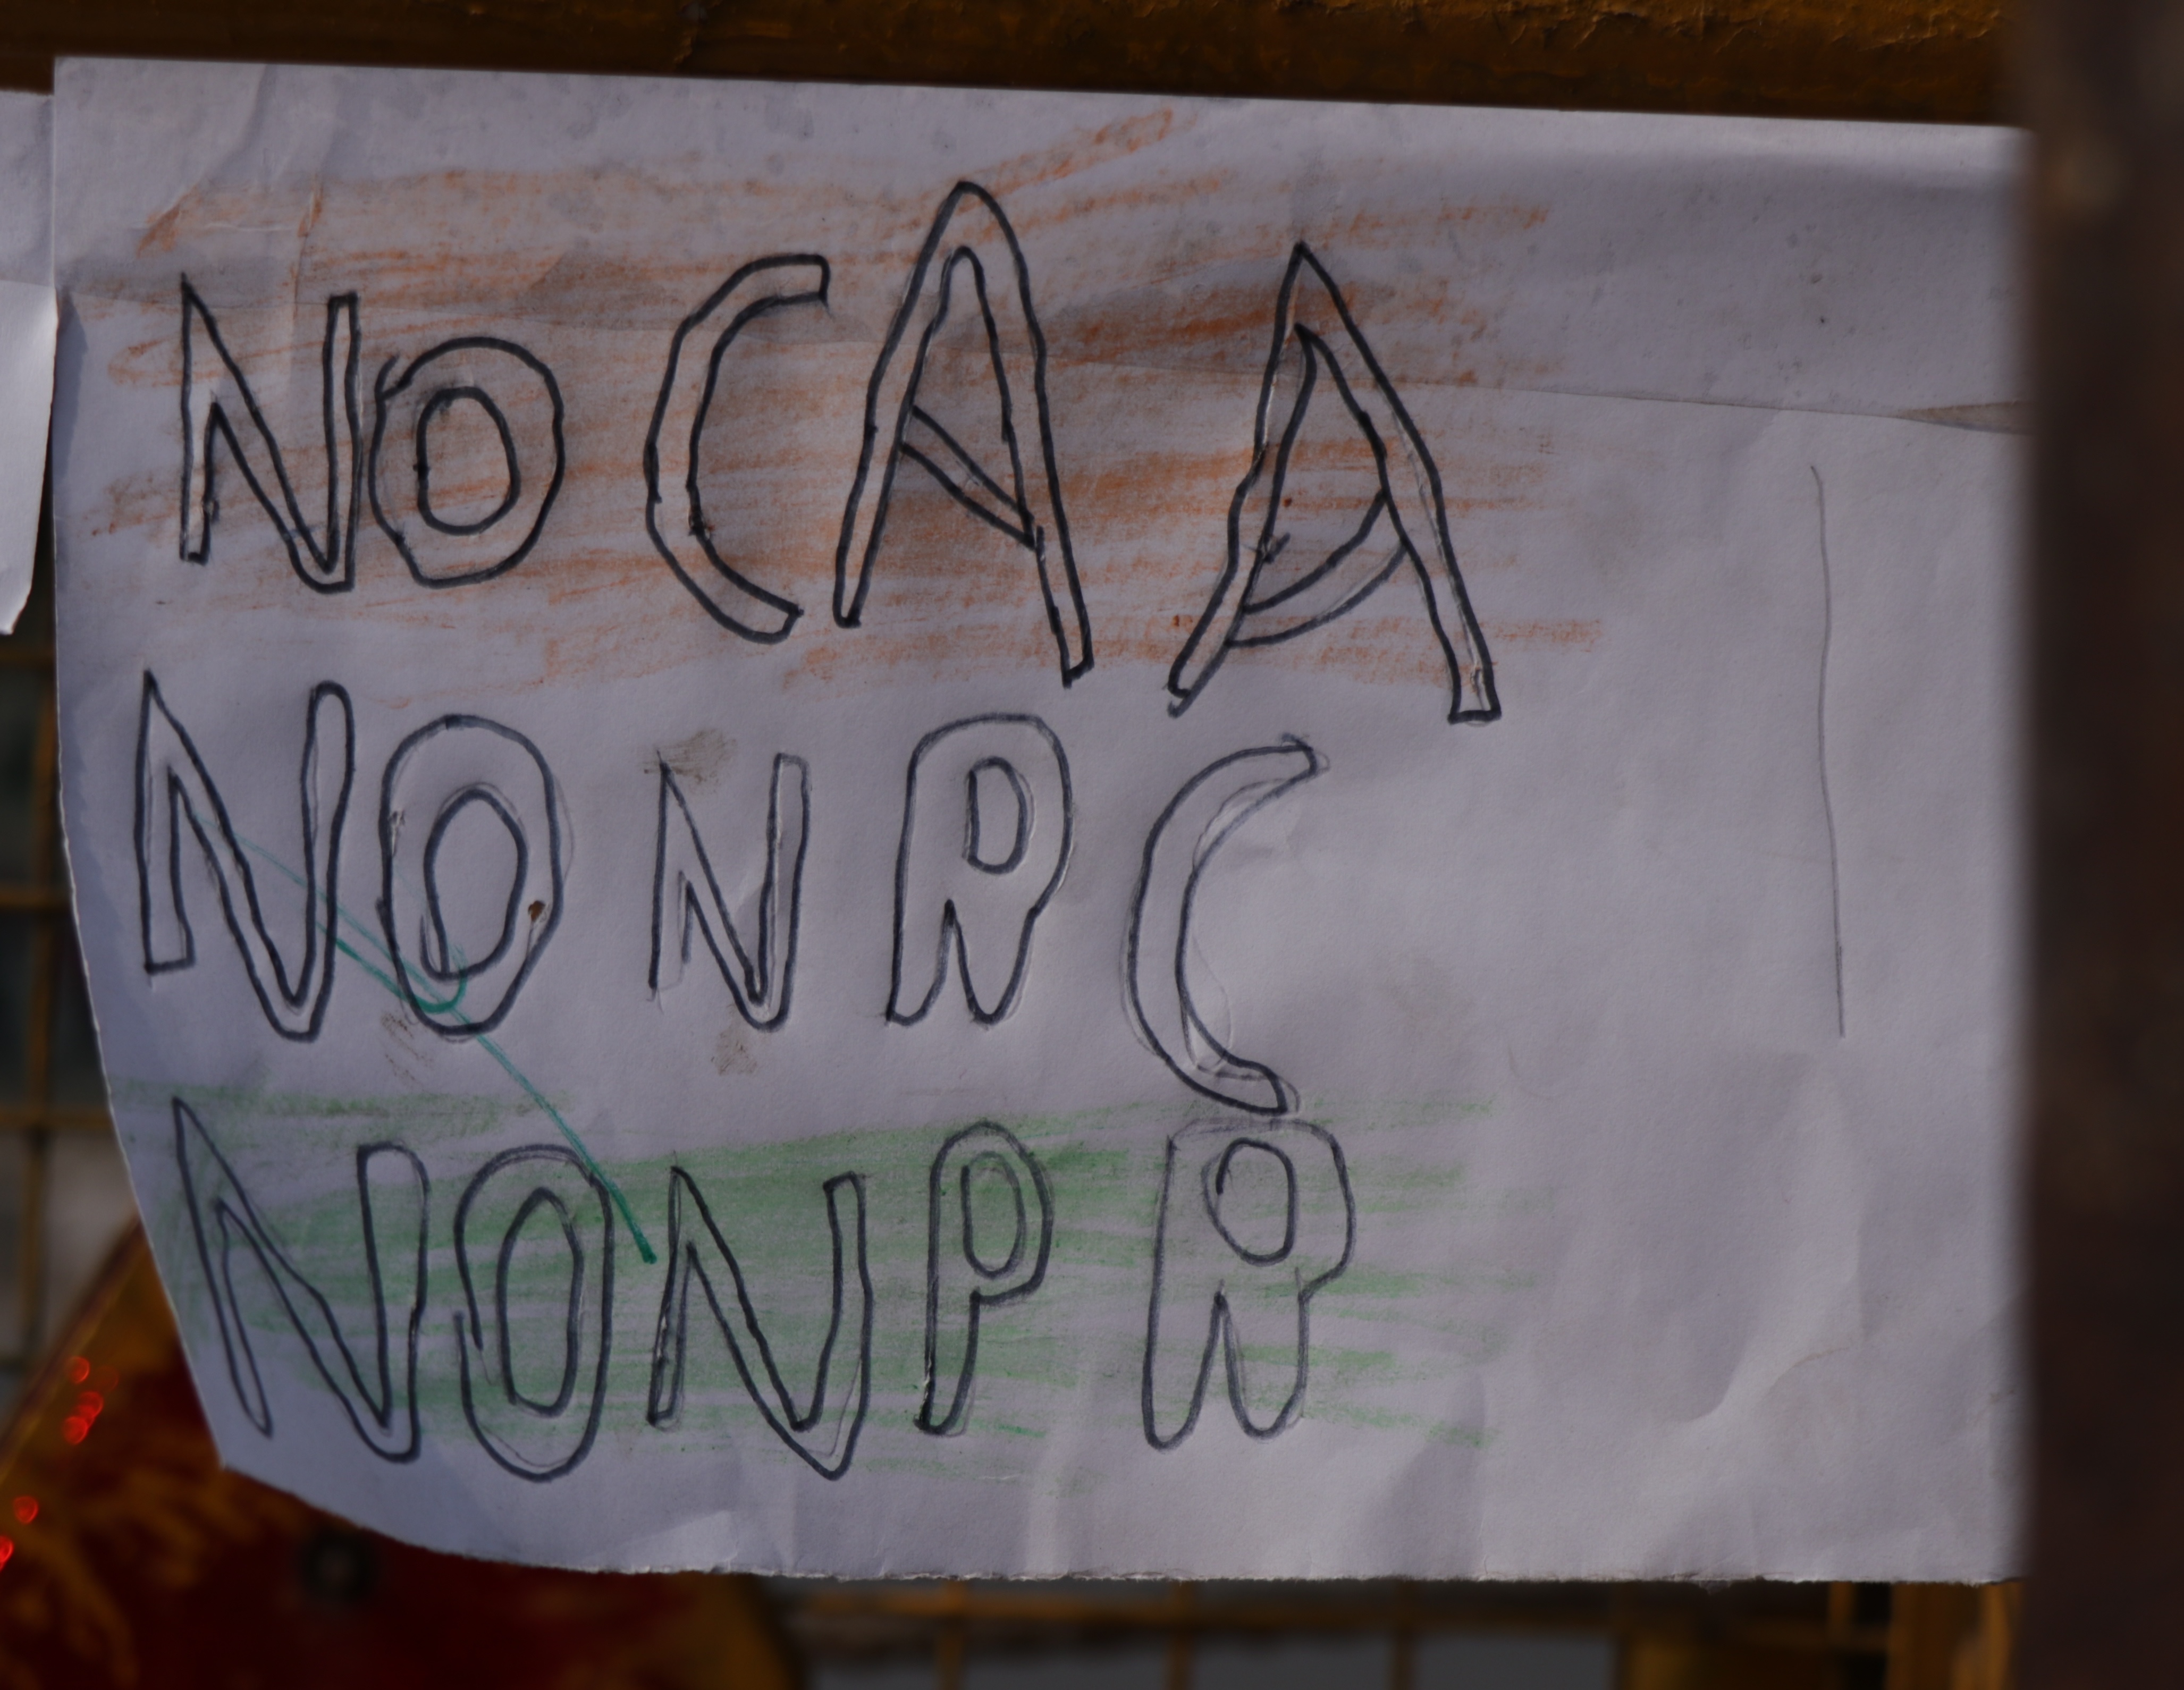 No CAA
NO NRC
NO NPR